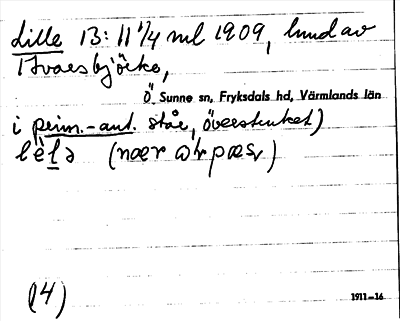 Lille 13: 11 1/4 ml 1909, lund av
Tvaesbjörke,
Ö. Sunne sn, Fryksdals hd, Värmlands län
i prim.-ant. står, överstruket)
lèlə (nær
(14)
1911—16